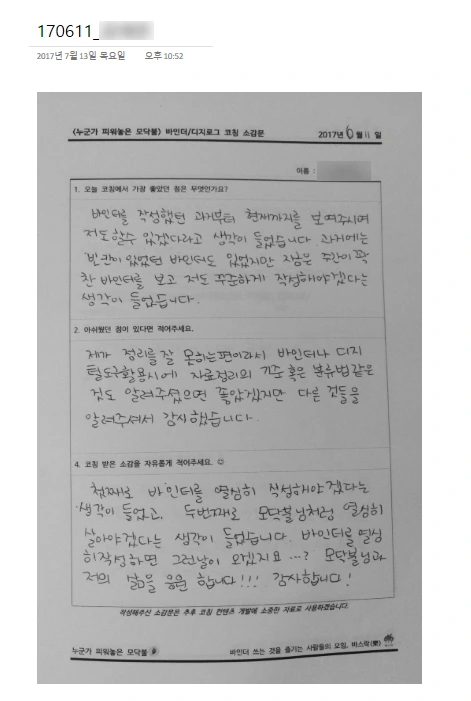 170611_
2017년 7월 13일 목요일 오후 10:52
<누군가 피워놓은 모닥불> 바인더/디지로그 코칭 소감문 2017년 6월 11일
이름 :
1. 오늘 코칭에서 가장 좋았던 점은 무엇인가요?
바인더를 작성했던 과거부터 현재까지를 보여주시며
저도 할수 있겠다라고 생각이 들었습니다. 과거에는
빈칸이 있었던 바인더도 있었지만 지금은 주간이 꽉
찬 바인더를 보고 저도 꾸준하게 작성해야겠다는
생각이 들었습니다.
2. 아쉬웠던 점이 있다면 적어주세요.
제가 정리를 잘 못하는편이라서 바인더나 디지
털도구활용시에 자료정리의 기준 혹은 분류법같은
것도 알려주셨으면 좋았겠지만 다른 것들을
알려주셔서 감사했습니다.
4. 코칭 받은 소감을 자유롭게 적어주세요. ☺
첫째로 바인더를 열심히 작성해야겠다는
생각이 들었고, 두번째로 모닥불님처럼 열심히
살아야겠다는 생각이 들었습니다. 바인더를 열심
히작성하면 그런날이 오겠지요…? 모닥불님과
저의 삶을 응원 합니다!!! 감사합니다!
작성해주신 소감문은 추후 코칭 컨텐츠 개발에 소중한 자료로 사용하겠습니다.
누군가 피워놓은 모닥불 바인더 쓰는 것을 즐기는 사람들의 모임, 바스락(樂)